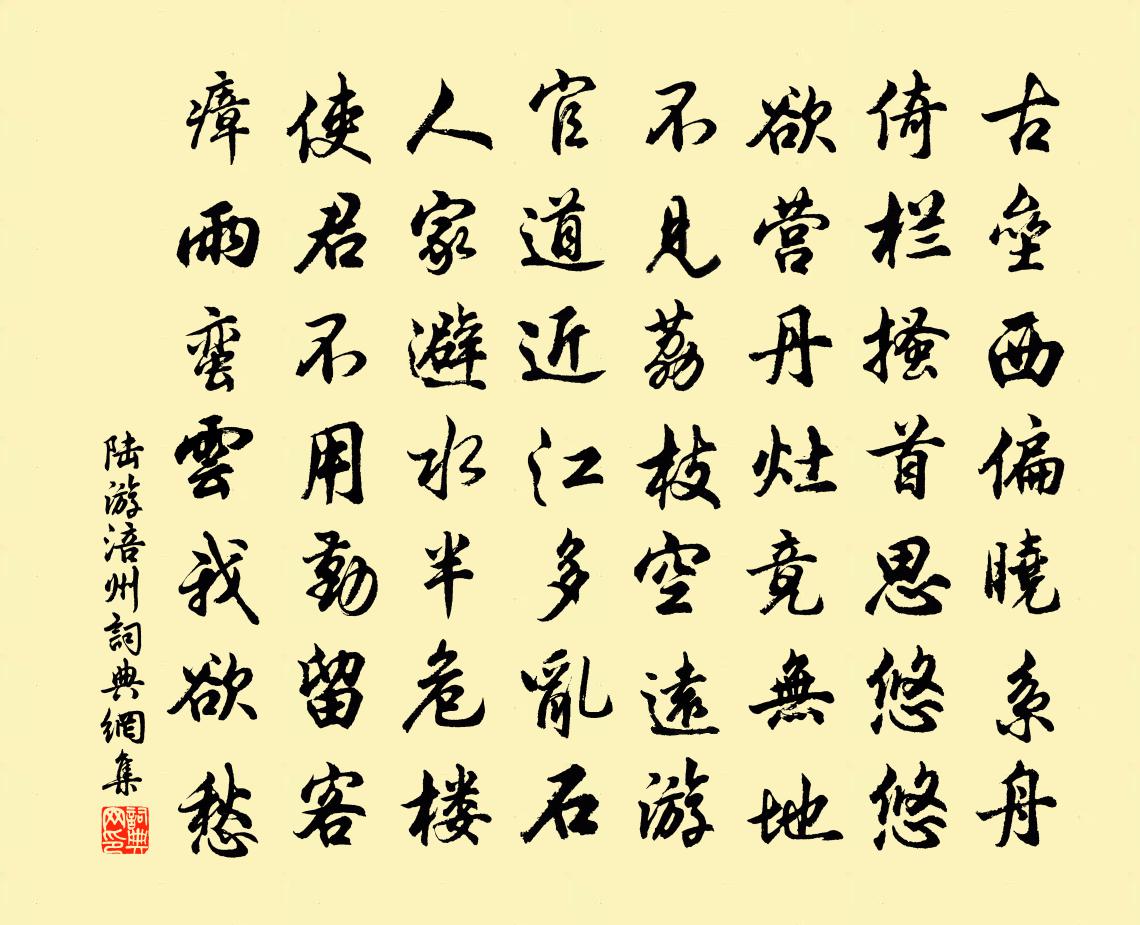 古垒西偏曉系舟
倚栏搔首思悠悠
欲营丹灶竟無地
不見荔枝空遠游
官道近江多亂石
人家避水半危楼
使君不用勤留客
瘴雨蛮雲我欲愁
陆游涪州詞典網集
詞典网印